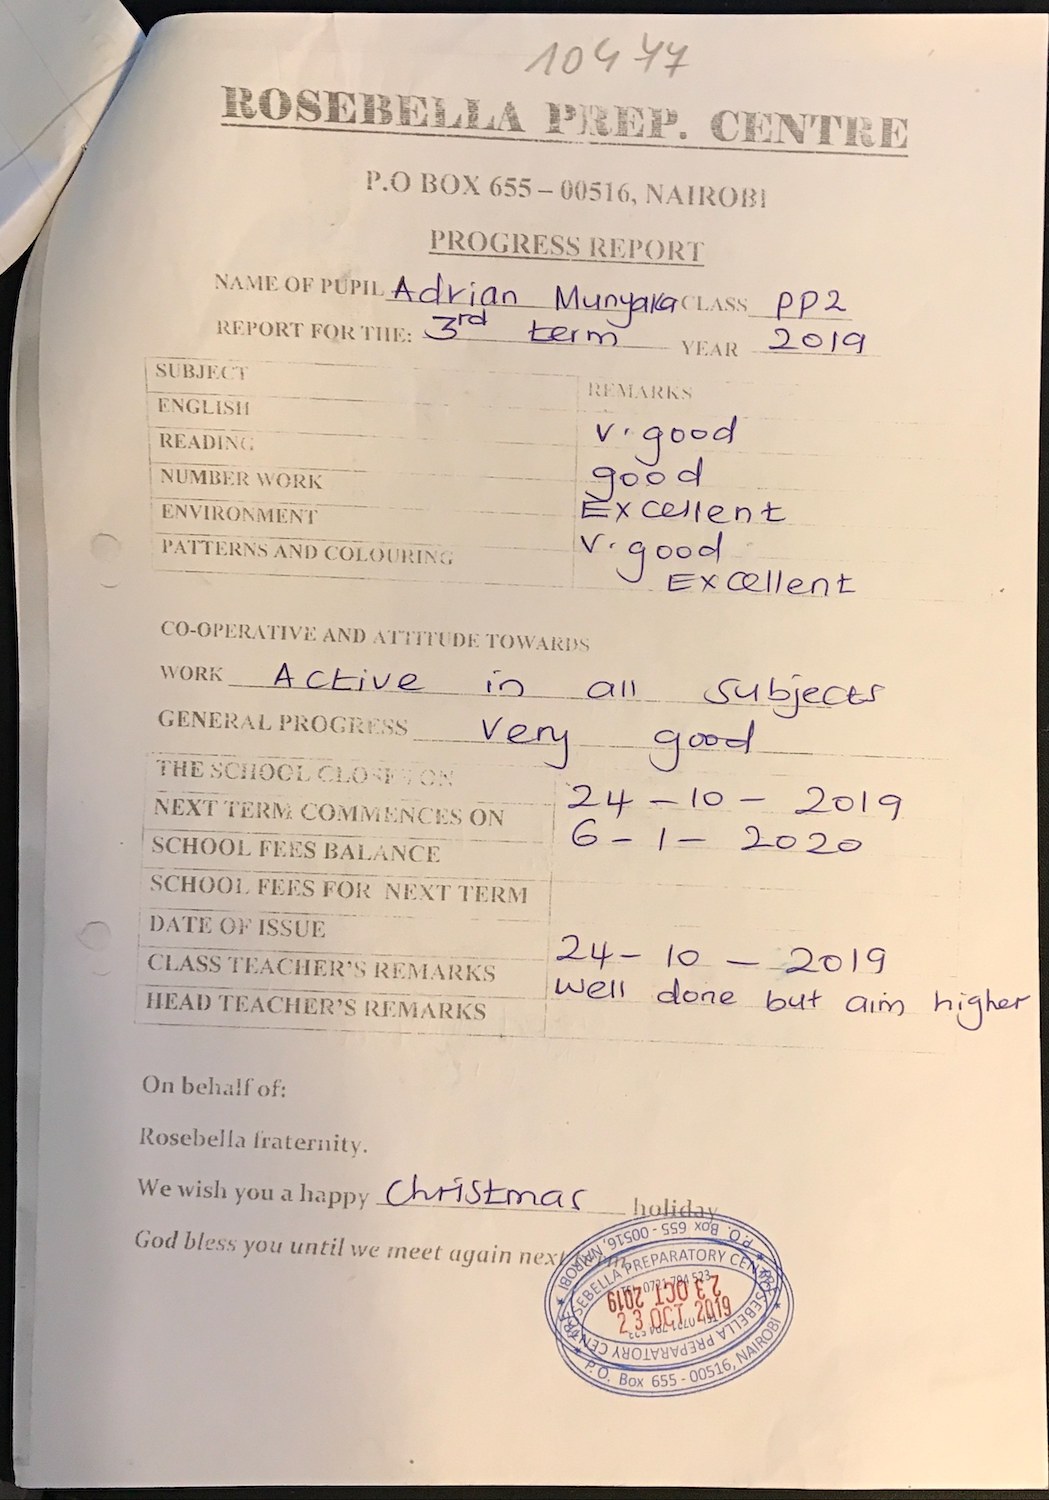 10477
ROSEBELLA PREP. CENTRE
P.O BOX 655 – 00516, NAIROBI
PROGRESS REPORT
NAME OF PUPIL Adrian Munyaka CLASS PP2
REPORT FOR THE: 3rd term YEAR 2019
SUBJECT REMARKS
ENGLISH V. good
READING good
NUMBER WORK Excellent
ENVIRONMENT V. good
PATTERNS AND COLOURING Excellent
CO-OPERATIVE AND ATTITUDE TOWARDS
WORK Active in all subjects
GENERAL PROGRESS Very good
THE SCHOOL CLOSES ON 24 – 10 – 2019
NEXT TERM COMMENCES ON 6 – 1 – 2020
SCHOOL FEES BALANCE
SCHOOL FEES FOR NEXT TERM
DATE OF ISSUE 24 – 10 – 2019
CLASS TEACHER'S REMARKS Well done but aim higher
HEAD TEACHER'S REMARKS
On behalf of:
Rosebella fraternity.
We wish you a happy Christmas holiday
God bless you until we meet again next
P.O. Box 655 - 00516, NAIROBI
ROSEBELLA PREPARATORY CENTRE
23 OCT 2019
23 OCT 2019
ROSEBELLA PREPARATORY CENTRE
P.O. Box 655 - 00516, NAIROBI